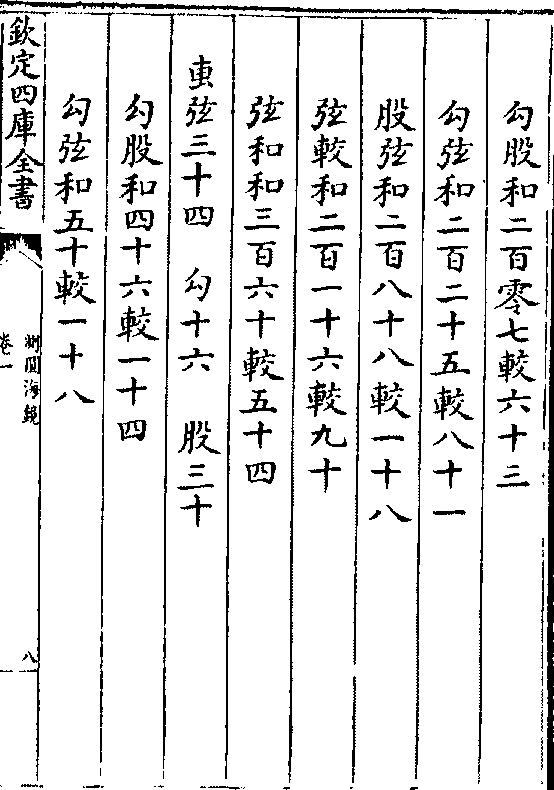 勾股和二百零七較六十三
勾弦和二百二十五較八十一
股弦和二百八十八較一十八
弦較和二百一十六較九十
弦和和三百六十較五十四
叀弦三十四　勾十六　股三十
勾股和四十六較一十四
勾弦和五十較一十八
欽定四庫全書
測圓海鏡
卷一
八